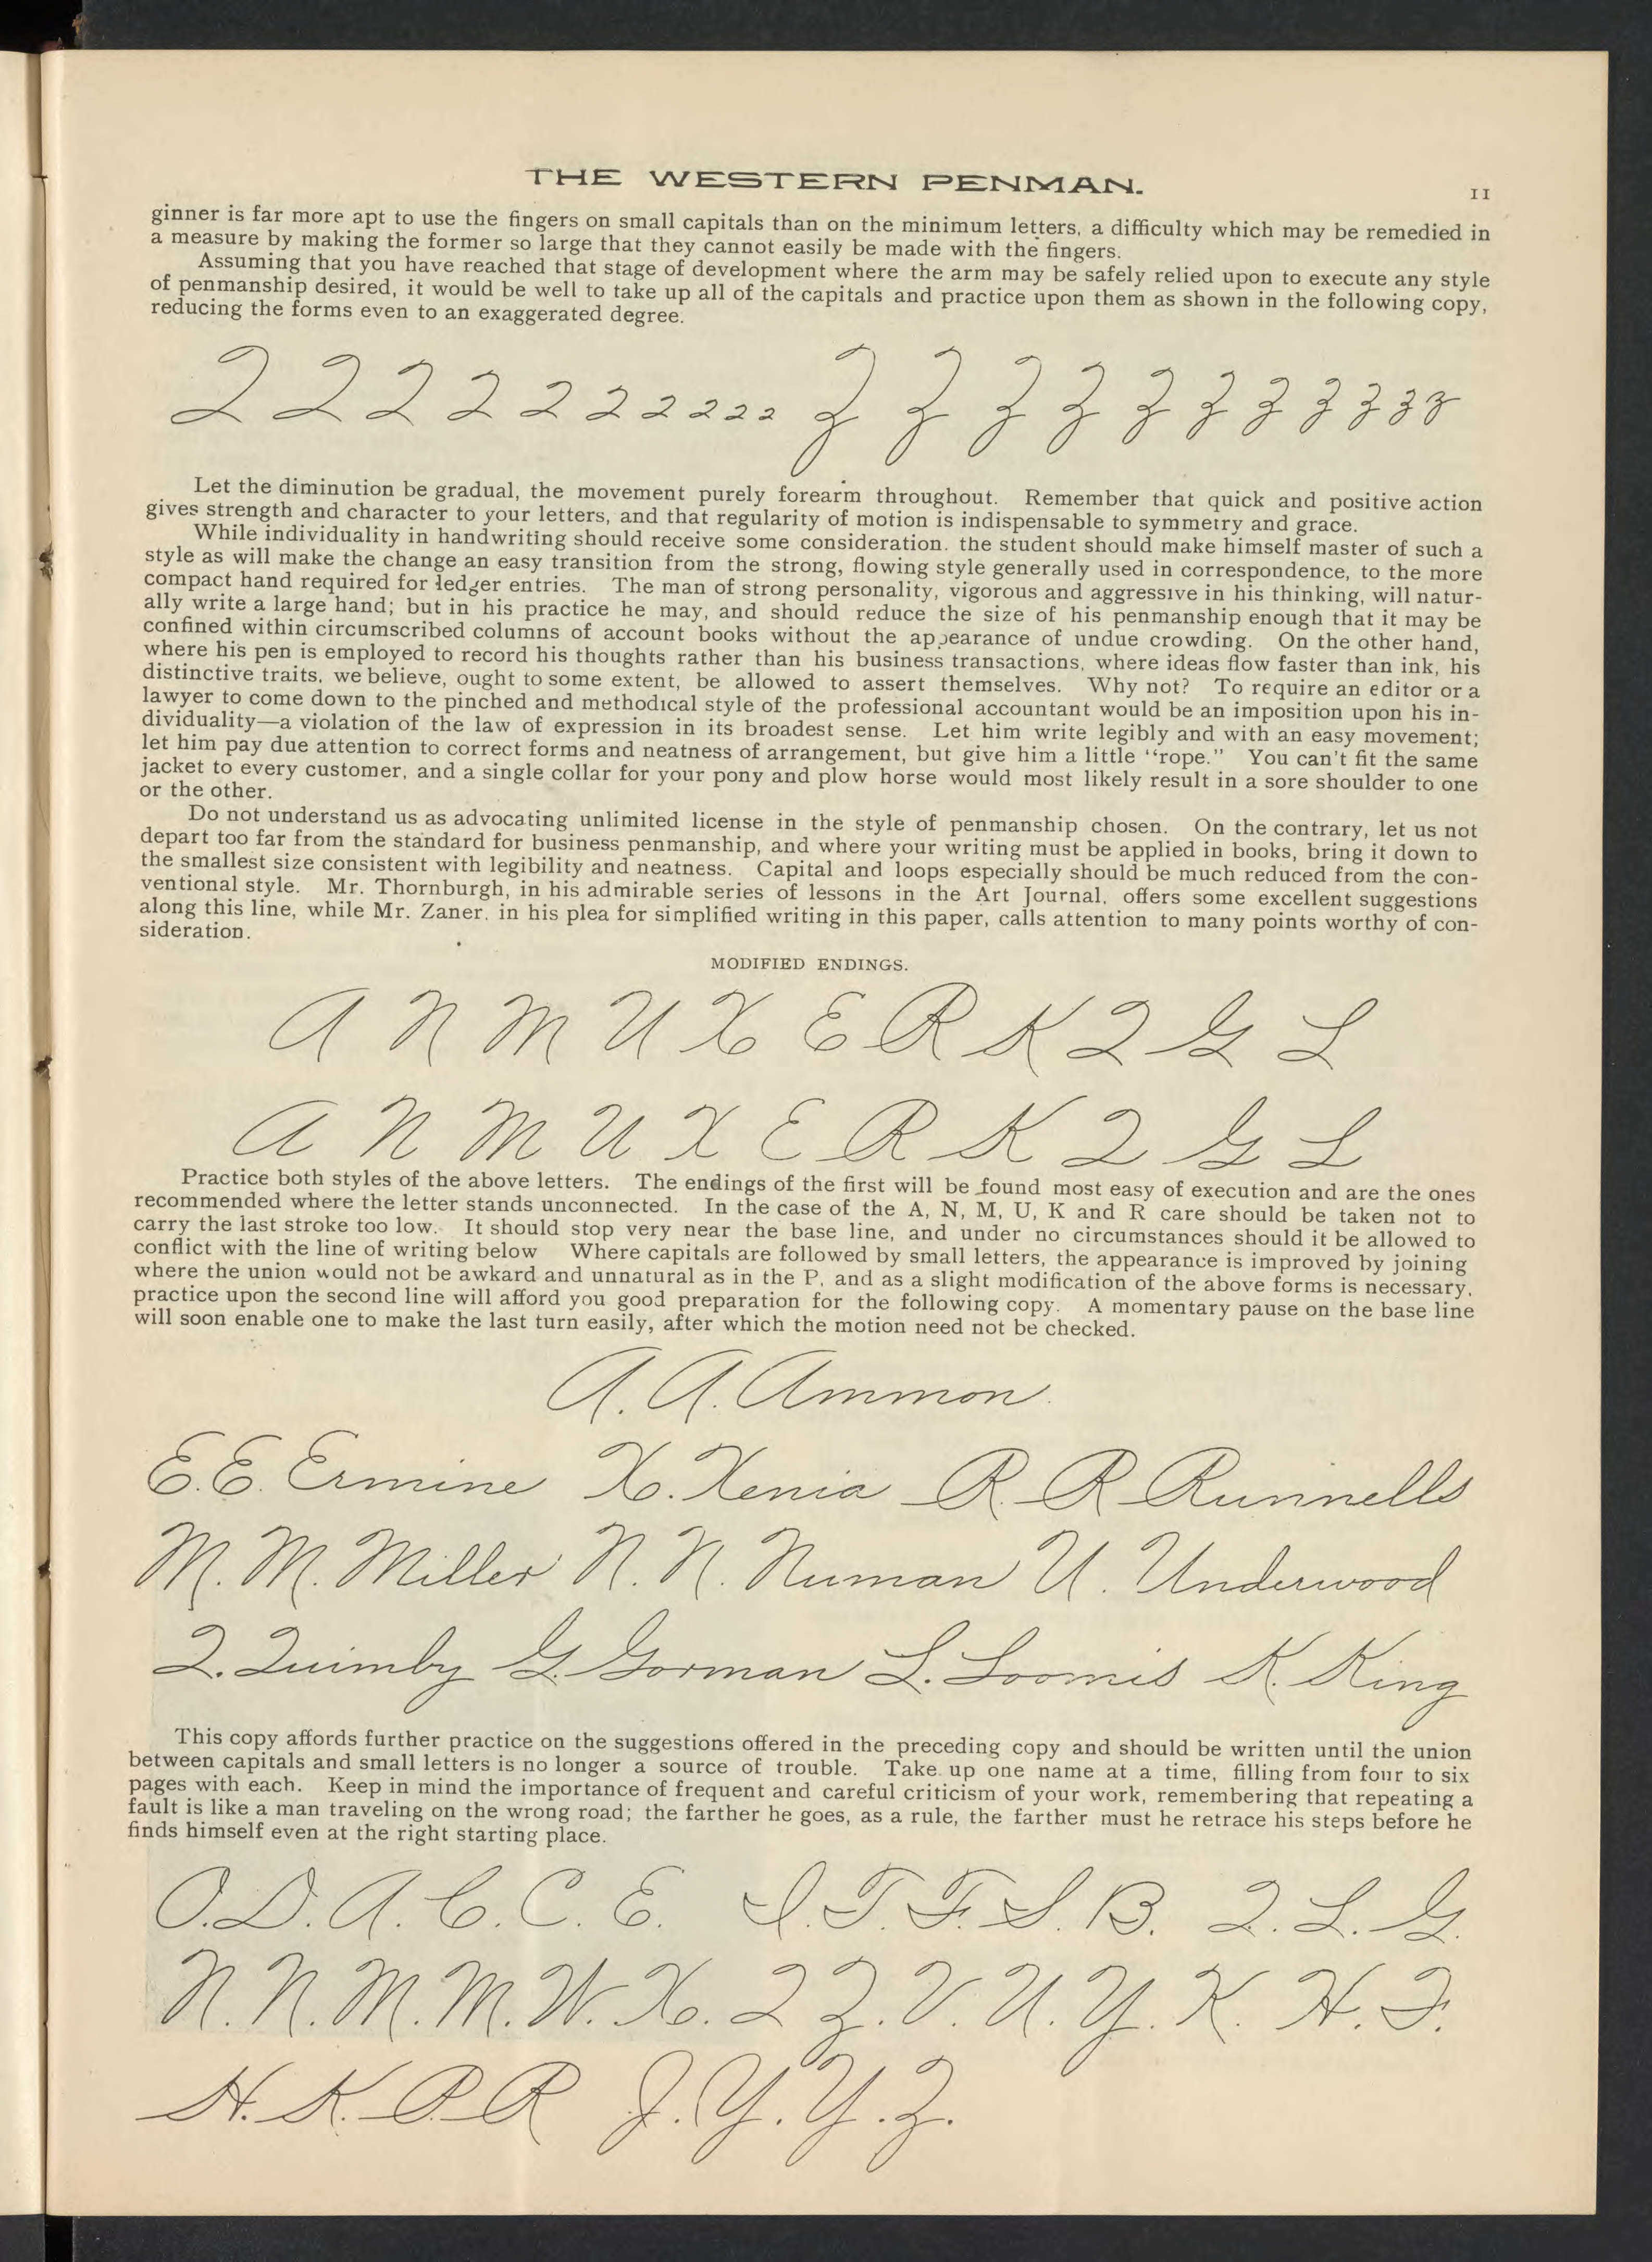 THE WESTERN PENMAN.
11
ginner is far more apt to use the fingers on small capitals than on the minimum letters, a difficulty which may be remedied in
a measure by making the former so large that they cannot easily be made with the fingers.
Assuming that you have reached that stage of development where the arm may be safely relied upon to execute any style
of penmanship desired, it would be well to take up all of the capitals and practice upon them as shown in the following copy,
reducing the forms even to an exaggerated degree.
2 2 2 2 2 2 2 2 2 2 2 Z Z Z Z Z Z Z Z Z Z Z
Let the diminution be gradual, the movement purely forearm throughout. Remember that quick and positive action
gives strength and character to your letters, and that regularity of motion is indispensable to symmetry and grace.
While individuality in handwriting should receive some consideration. the student should make himself master of such a
style as will make the change an easy transition from the strong, flowing style generally used in correspondence, to the more
compact hand required for ledger entries. The man of strong personality, vigorous and aggressive in his thinking, will natur-
ally write a large hand; but in his practice he may, and should reduce the size of his penmanship enough that it may be
confined within circumscribed columns of account books without the appearance of undue crowding. On the other hand,
where his pen is employed to record his thoughts rather than his business transactions, where ideas flow faster than ink, his
distinctive traits, we believe, ought to some extent, be allowed to assert themselves. Why not? To require an editor or a
lawyer to come down to the pinched and methodical style of the professional accountant would be an imposition upon his in-
dividuality—a violation of the law of expression in its broadest sense. Let him write legibly and with an easy movement;
let him pay due attention to correct forms and neatness of arrangement, but give him a little "rope." You can't fit the same
jacket to every customer, and a single collar for your pony and plow horse would most likely result in a sore shoulder to one
or the other.
Do not understand us as advocating unlimited license in the style of penmanship chosen. On the contrary, let us not
depart too far from the standard for business penmanship, and where your writing must be applied in books, bring it down to
the smallest size consistent with legibility and neatness. Capital and loops especially should be much reduced from the con-
ventional style. Mr. Thornburgh, in his admirable series of lessons in the Art Journal, offers some excellent suggestions
along this line, while Mr. Zaner, in his plea for simplified writing in this paper, calls attention to many points worthy of con-
sideration.
MODIFIED ENDINGS.
A N M U X E R K Q G L
A N M U X E R K Q G L
Practice both styles of the above letters. The endings of the first will be found most easy of execution and are the ones
recommended where the letter stands unconnected. In the case of the A, N, M, U, K and R care should be taken not to
carry the last stroke too low. It should stop very near the base line, and under no circumstances should it be allowed to
conflict with the line of writing below Where capitals are followed by small letters, the appearance is improved by joining
where the union would not be awkard and unnatural as in the P, and as a slight modification of the above forms is necessary,
practice upon the second line will afford you good preparation for the following copy. A momentary pause on the base line
will soon enable one to make the last turn easily, after which the motion need not be checked.
A. A. Ammon.
E. E. Ermine X. Xenia R. R Runnells
M. M. Miller N. N. Numan U. Underwood
Q. Quimby G. Gorman L. Loomis K. King
This copy affords further practice on the suggestions offered in the preceding copy and should be written until the union
between capitals and small letters is no longer a source of trouble. Take up one name at a time, filling from four to six
pages with each. Keep in mind the importance of frequent and careful criticism of your work, remembering that repeating a
fault is like a man traveling on the wrong road; the farther he goes, as a rule, the farther must he retrace his steps before he
finds himself even at the right starting place.
O. D. A. C. C. E. S. T. F. S. B. Q. L. G.
N. N. M. M. W. X. Q Z. V. U. Y. K. H. F.
H. K. P. R J. Y. Y. Z.